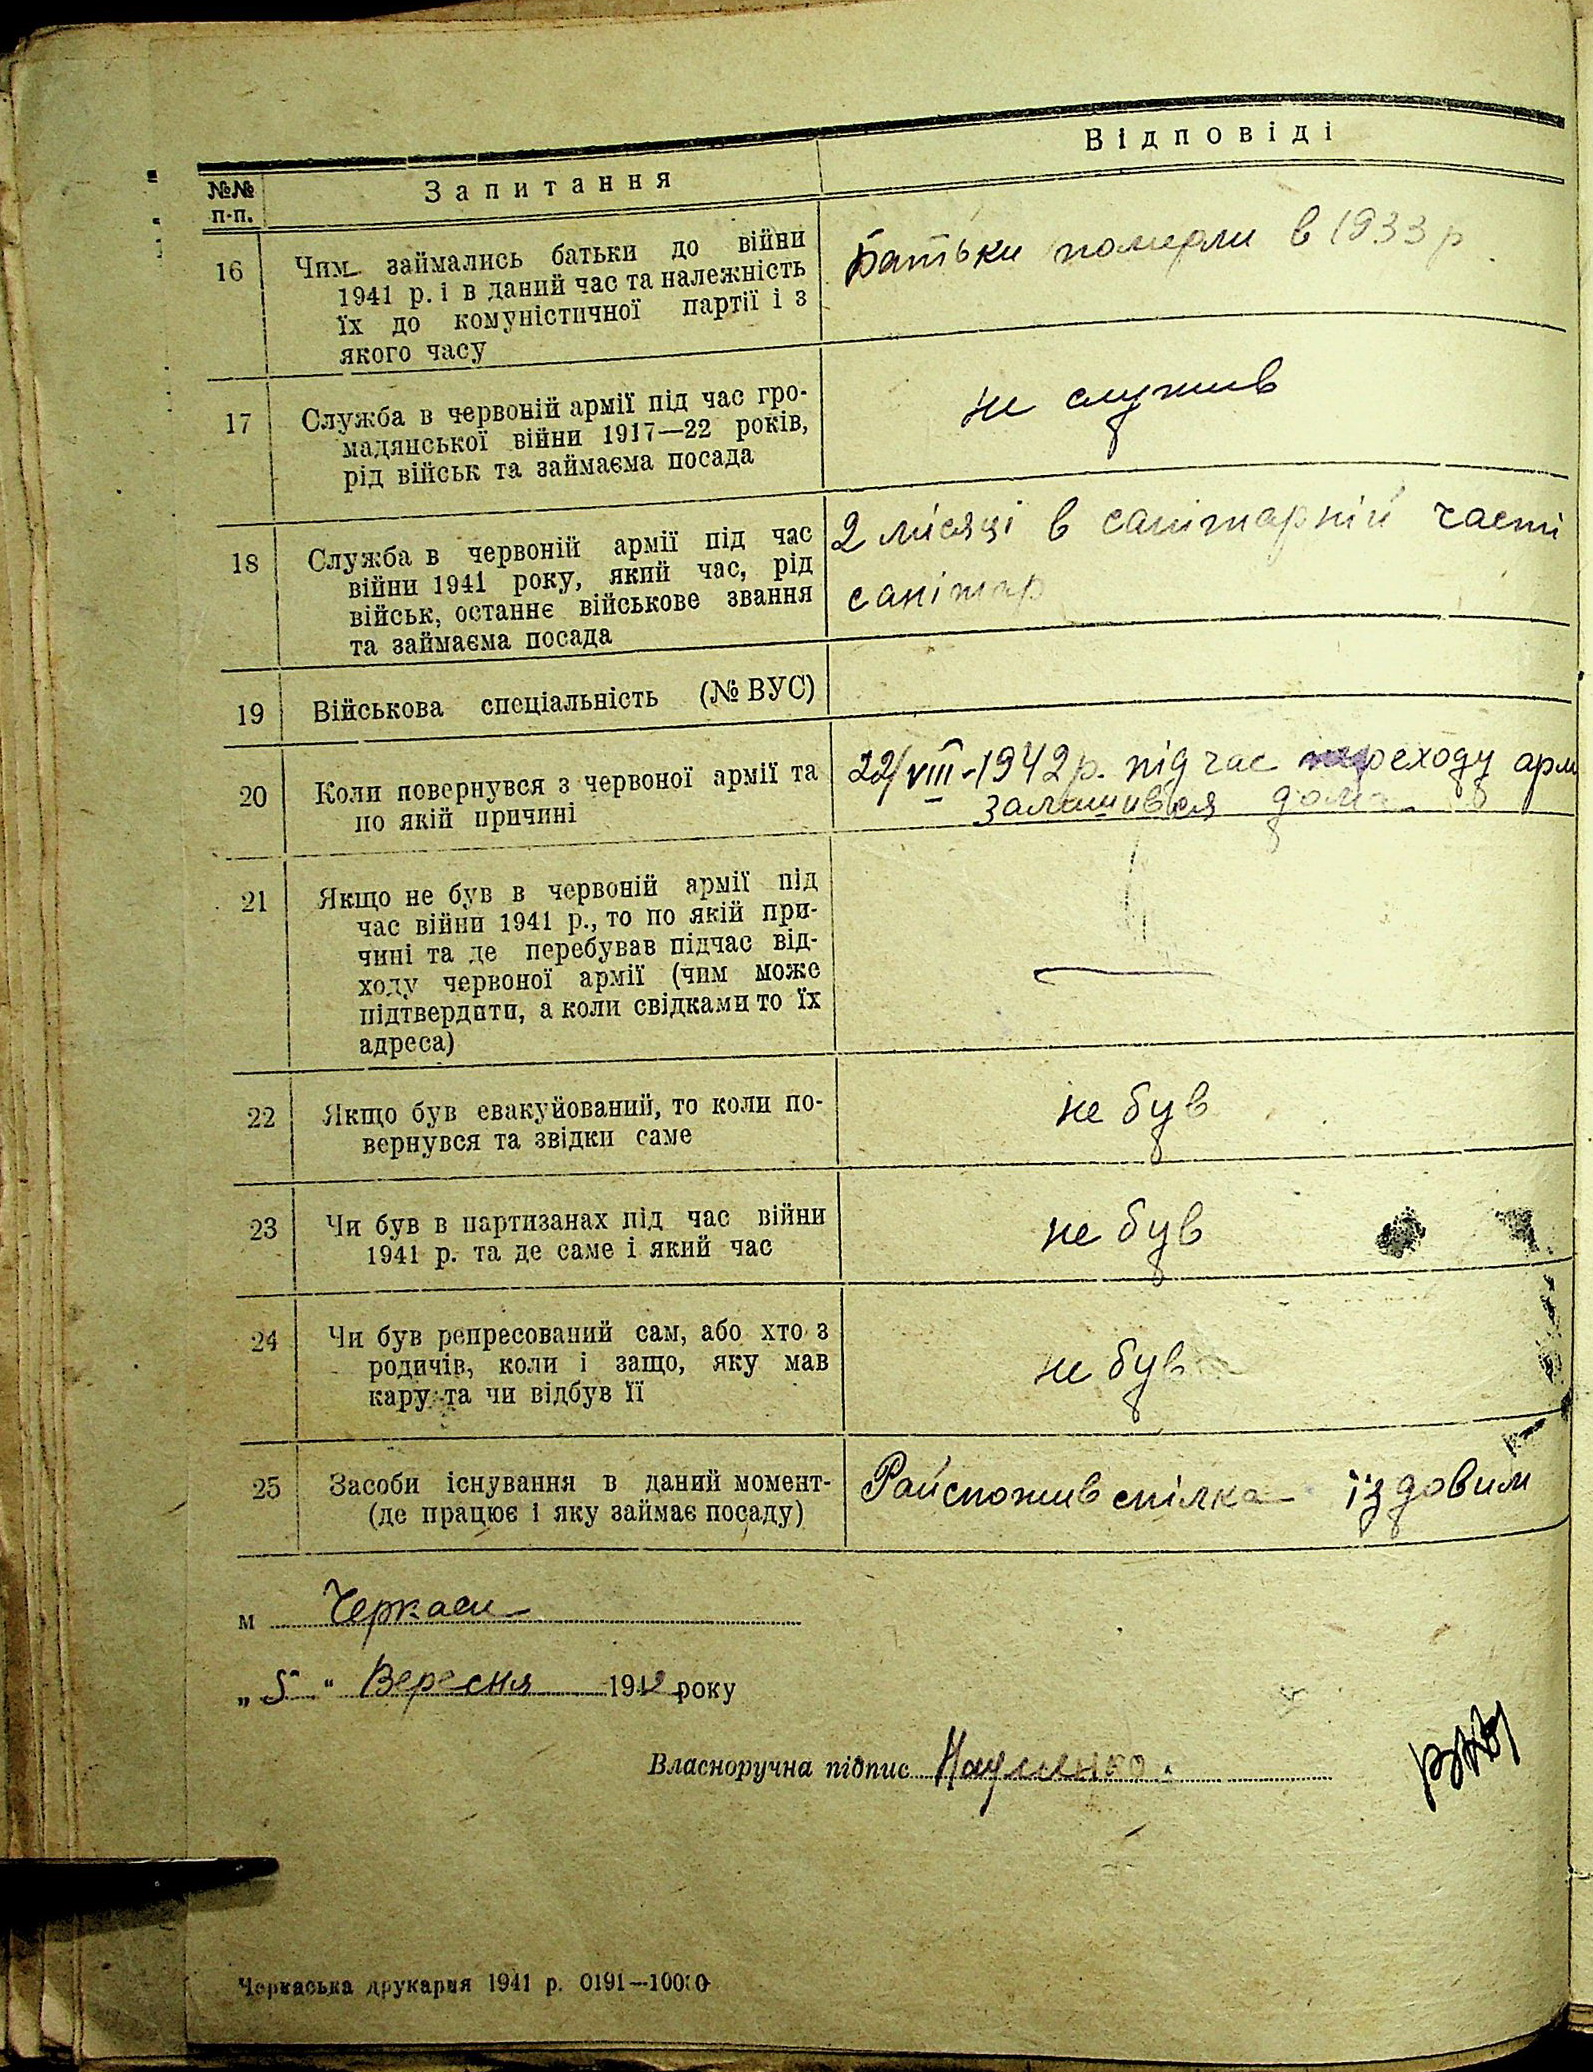 №№ п-п. Запитання Відповіді
16 Чим займались батьки до війни
1941 р. і в даний час та належність
їх до комуністичної партії і з
якого часу
Батьки померли в 1933 р
17 Служба в червоній армії під час гро-
мадянської війни 1917—22 років,
рід військ та займаєма посада
не служив
18 Служба в червоній армії під час
війни 1941 року, який час, рід
військ, останнє військове звання
та займаєма посада
2 місяці в санітарній часті
санітар
19 Військова спеціальність (№ ВУС)
20 Коли повернувся з червоної армії та
по якій причині
22/VIII-1942 р. під час переходу арм
залишився дома
21 Якщо не був в червоній армії під
час війни 1941 р., то по якій при-
чині та де перебував підчас від-
ходу червоної армії (чим може
підтвердити, а коли свідками то їх
адреса)
22 Якщо був евакуйований, то коли по-
вернувся та звідки саме
не був
23 Чи був в партизанах під час війни
1941 р. та де саме і який час
не був
24 Чи був репресований сам, або хто з
родичів, коли і защо, яку мав
кару та чи відбув її
не був
25 Засоби існування в даний момент-
(де працює і яку займає посаду)
Райспоживспілка їздовим
м Черкаси
„ 5 “ Вересня 1942 року
Власноручна підпис Науменко
Черкаська друкарня 1941 р. 0191—10000